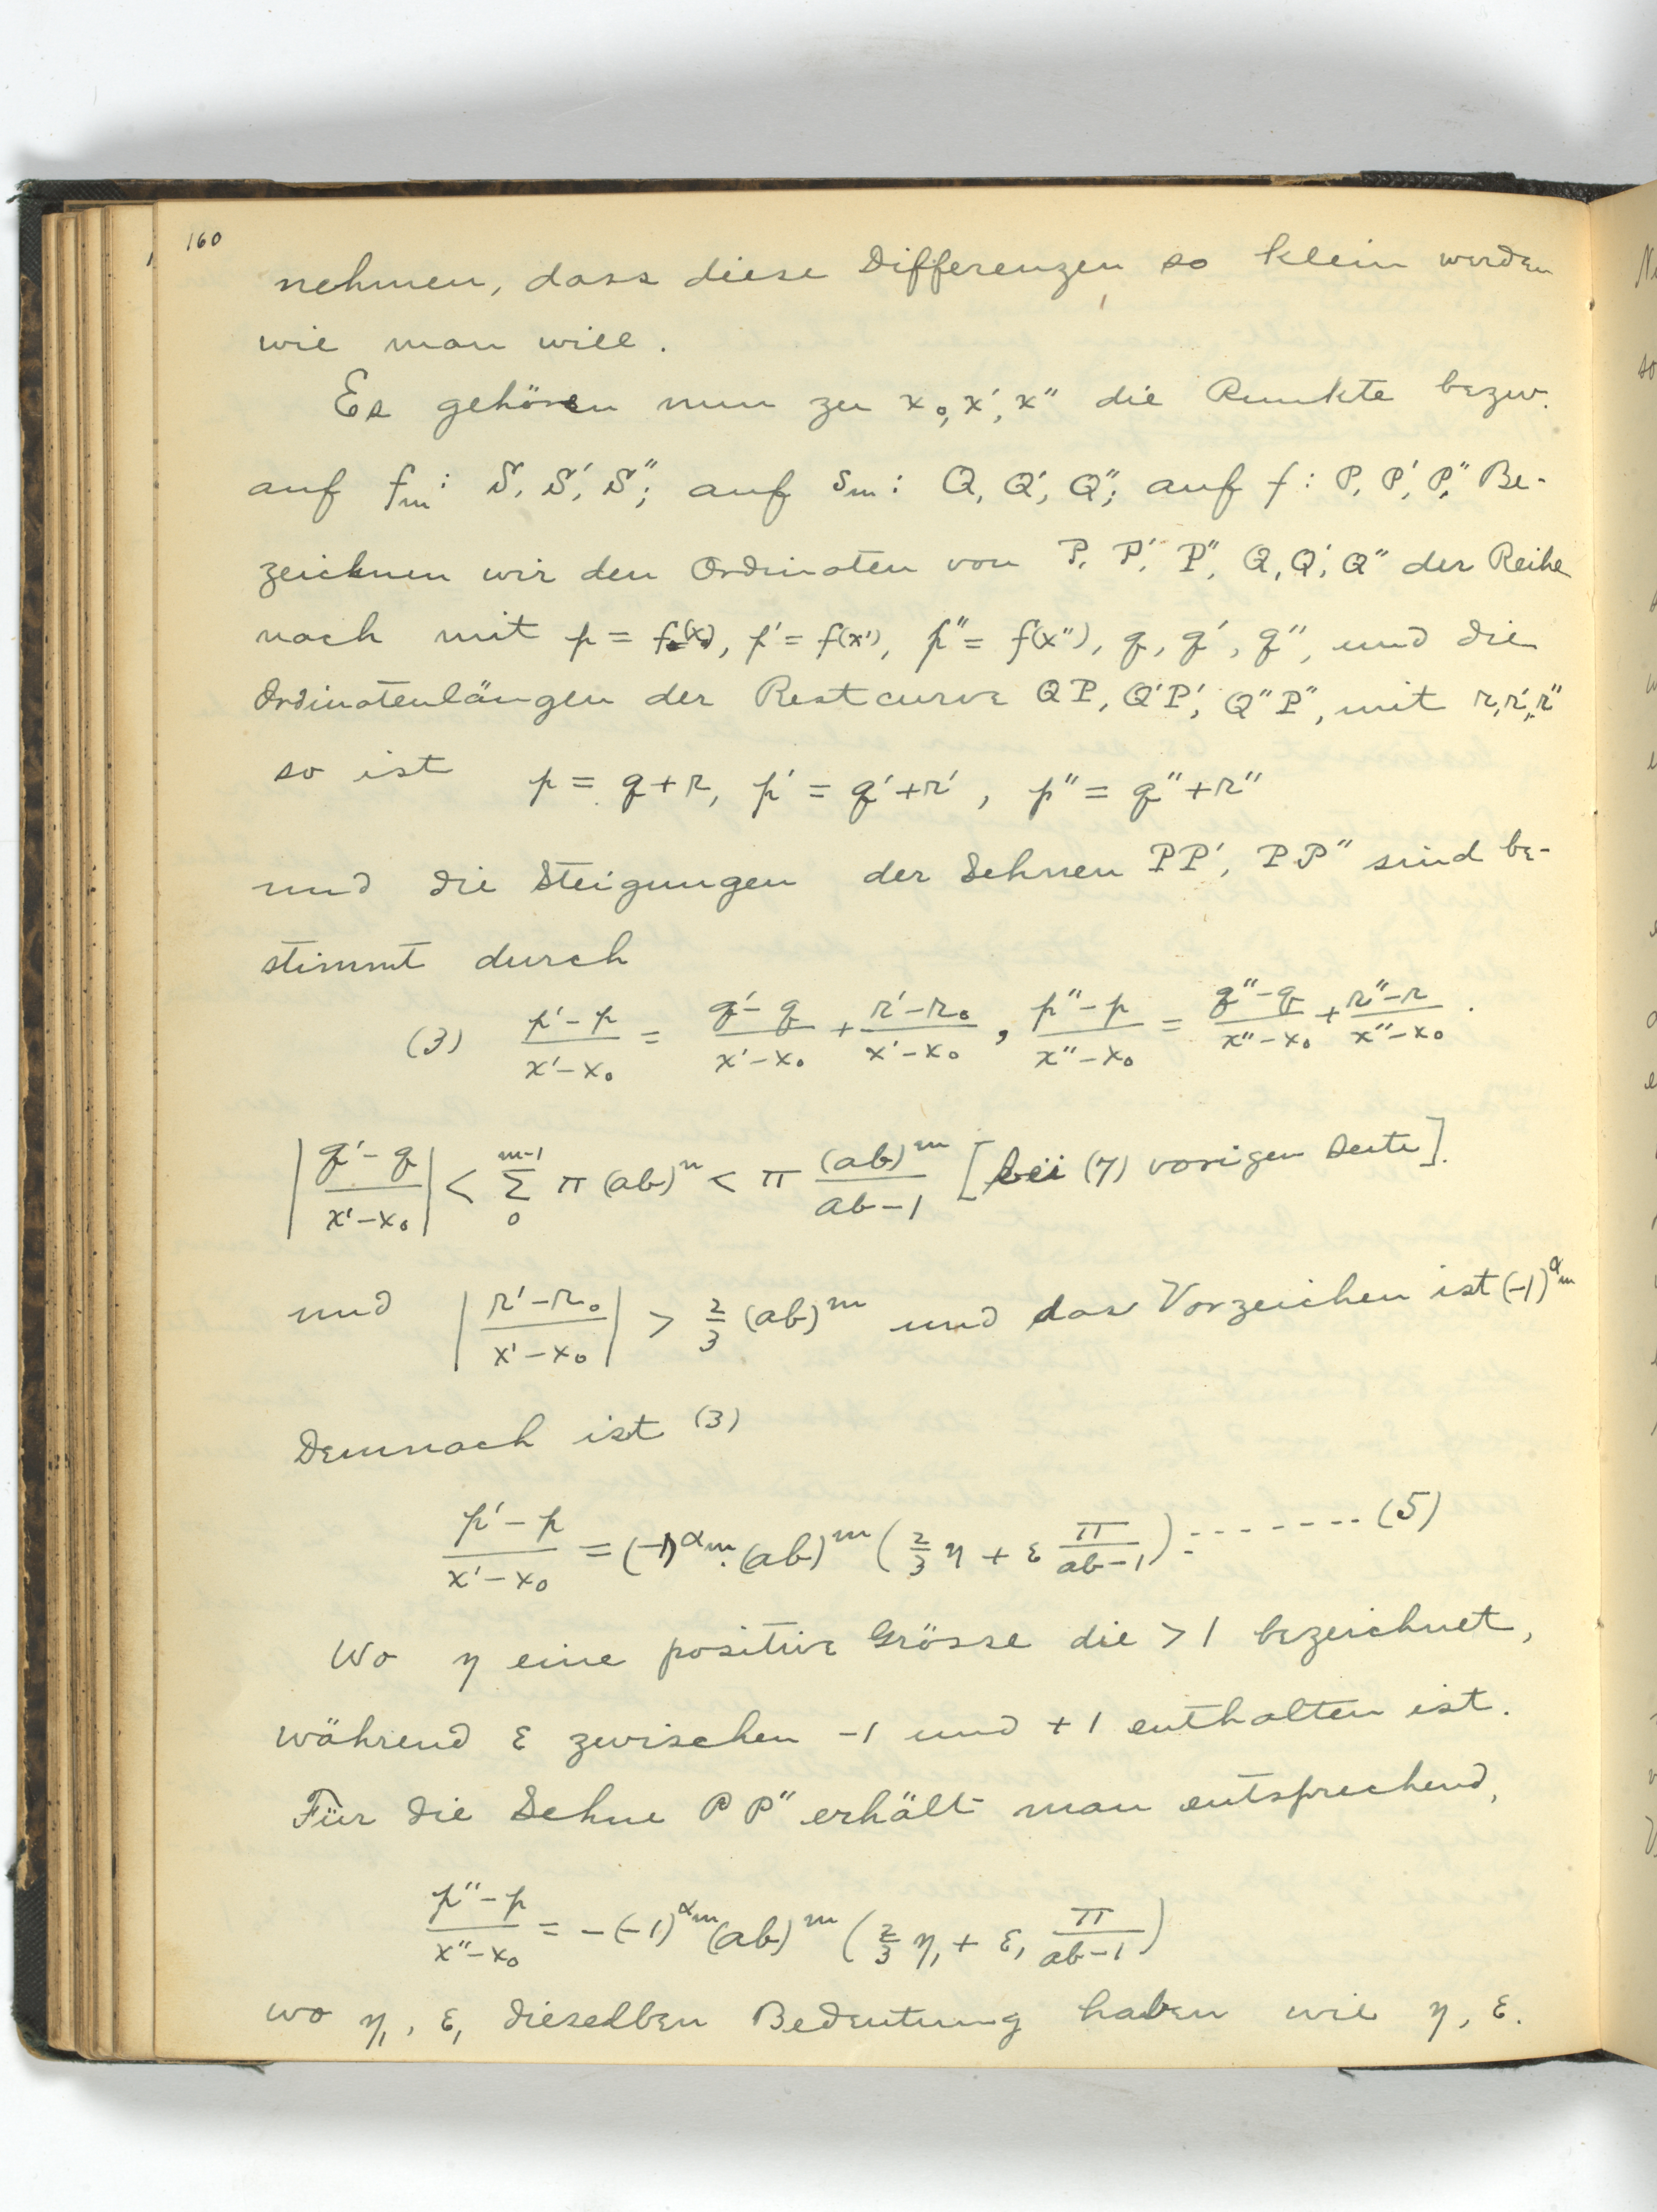 160
nehmen, dass diese Differenzen so klein werden
wie man will.
Es gehören nun zu x₀, x', x'' die Punkte bezw.
auf fₘ: S, S', S''; auf sₘ: Q, Q', Q''; auf f: P, P', P''. Be-
zeichnen wir den Ordinaten von P, P', P'', Q, Q', Q'' der Reihe
nach mit p = f(x₀), p' = f(x'), p'' = f(x''), q, q', q'', und die
Ordinatenlängen der Restcurve QP, Q'P', Q''P'', mit r, r', r''
so ist p = q+r, p' = q'+r', p'' = q''+r''
und die Steigungen der Sehnen PP', PP'' sind be-
stimmt durch
(3) (p'-p)/(x'-x₀) = (q'-q)/(x'-x₀) + (r'-r₀)/(x'-x₀), (p''-p)/(x''-x₀) = (q''-q)/(x''-x₀) + (r''-r)/(x''-x₀).
|(q'-q)/(x'-x₀)| < Σ₀^{m-1} π(ab)ⁿ < π (ab)ᵐ/(ab-1) [bei (7) vorigen Seite].
und |(r'-r₀)/(x'-x₀)| > 2/3 (ab)ᵐ und das Vorzeichen ist (-1)^{αₘ}
Demnach ist (3)
(p'-p)/(x'-x₀) = (-1)^{αₘ}.(ab)ᵐ (2/3 η + ε π/(ab-1)): ------- (5)
Wo η eine positive Grösse die > 1 bezeichnet,
während ε zwischen -1 und +1 enthalten ist.
Für die Sehne PP'' erhält man entsprechend,
(p''-p)/(x''-x₀) = -(-1)^{αₘ} (ab)ᵐ (2/3 η₁ + ε₁ π/(ab-1))
wo η₁, ε₁ dieselben Bedeutung haben wie η, ε.